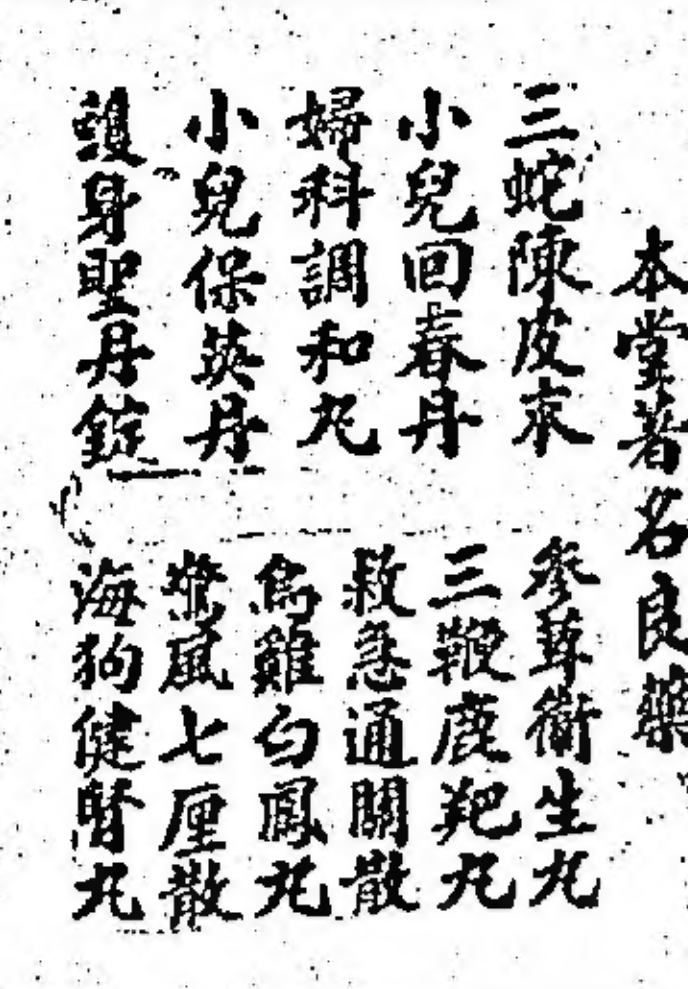 本堂著名良藥
三蛇陳皮末
小兒回春丹
婦科調和丸
小兒保英丹
護身聖丹錠
參茸衛生丸
三鞭鹿羓丸
救急通關散
烏雞白鳳丸
驚風七厘散
海狗健腎丸